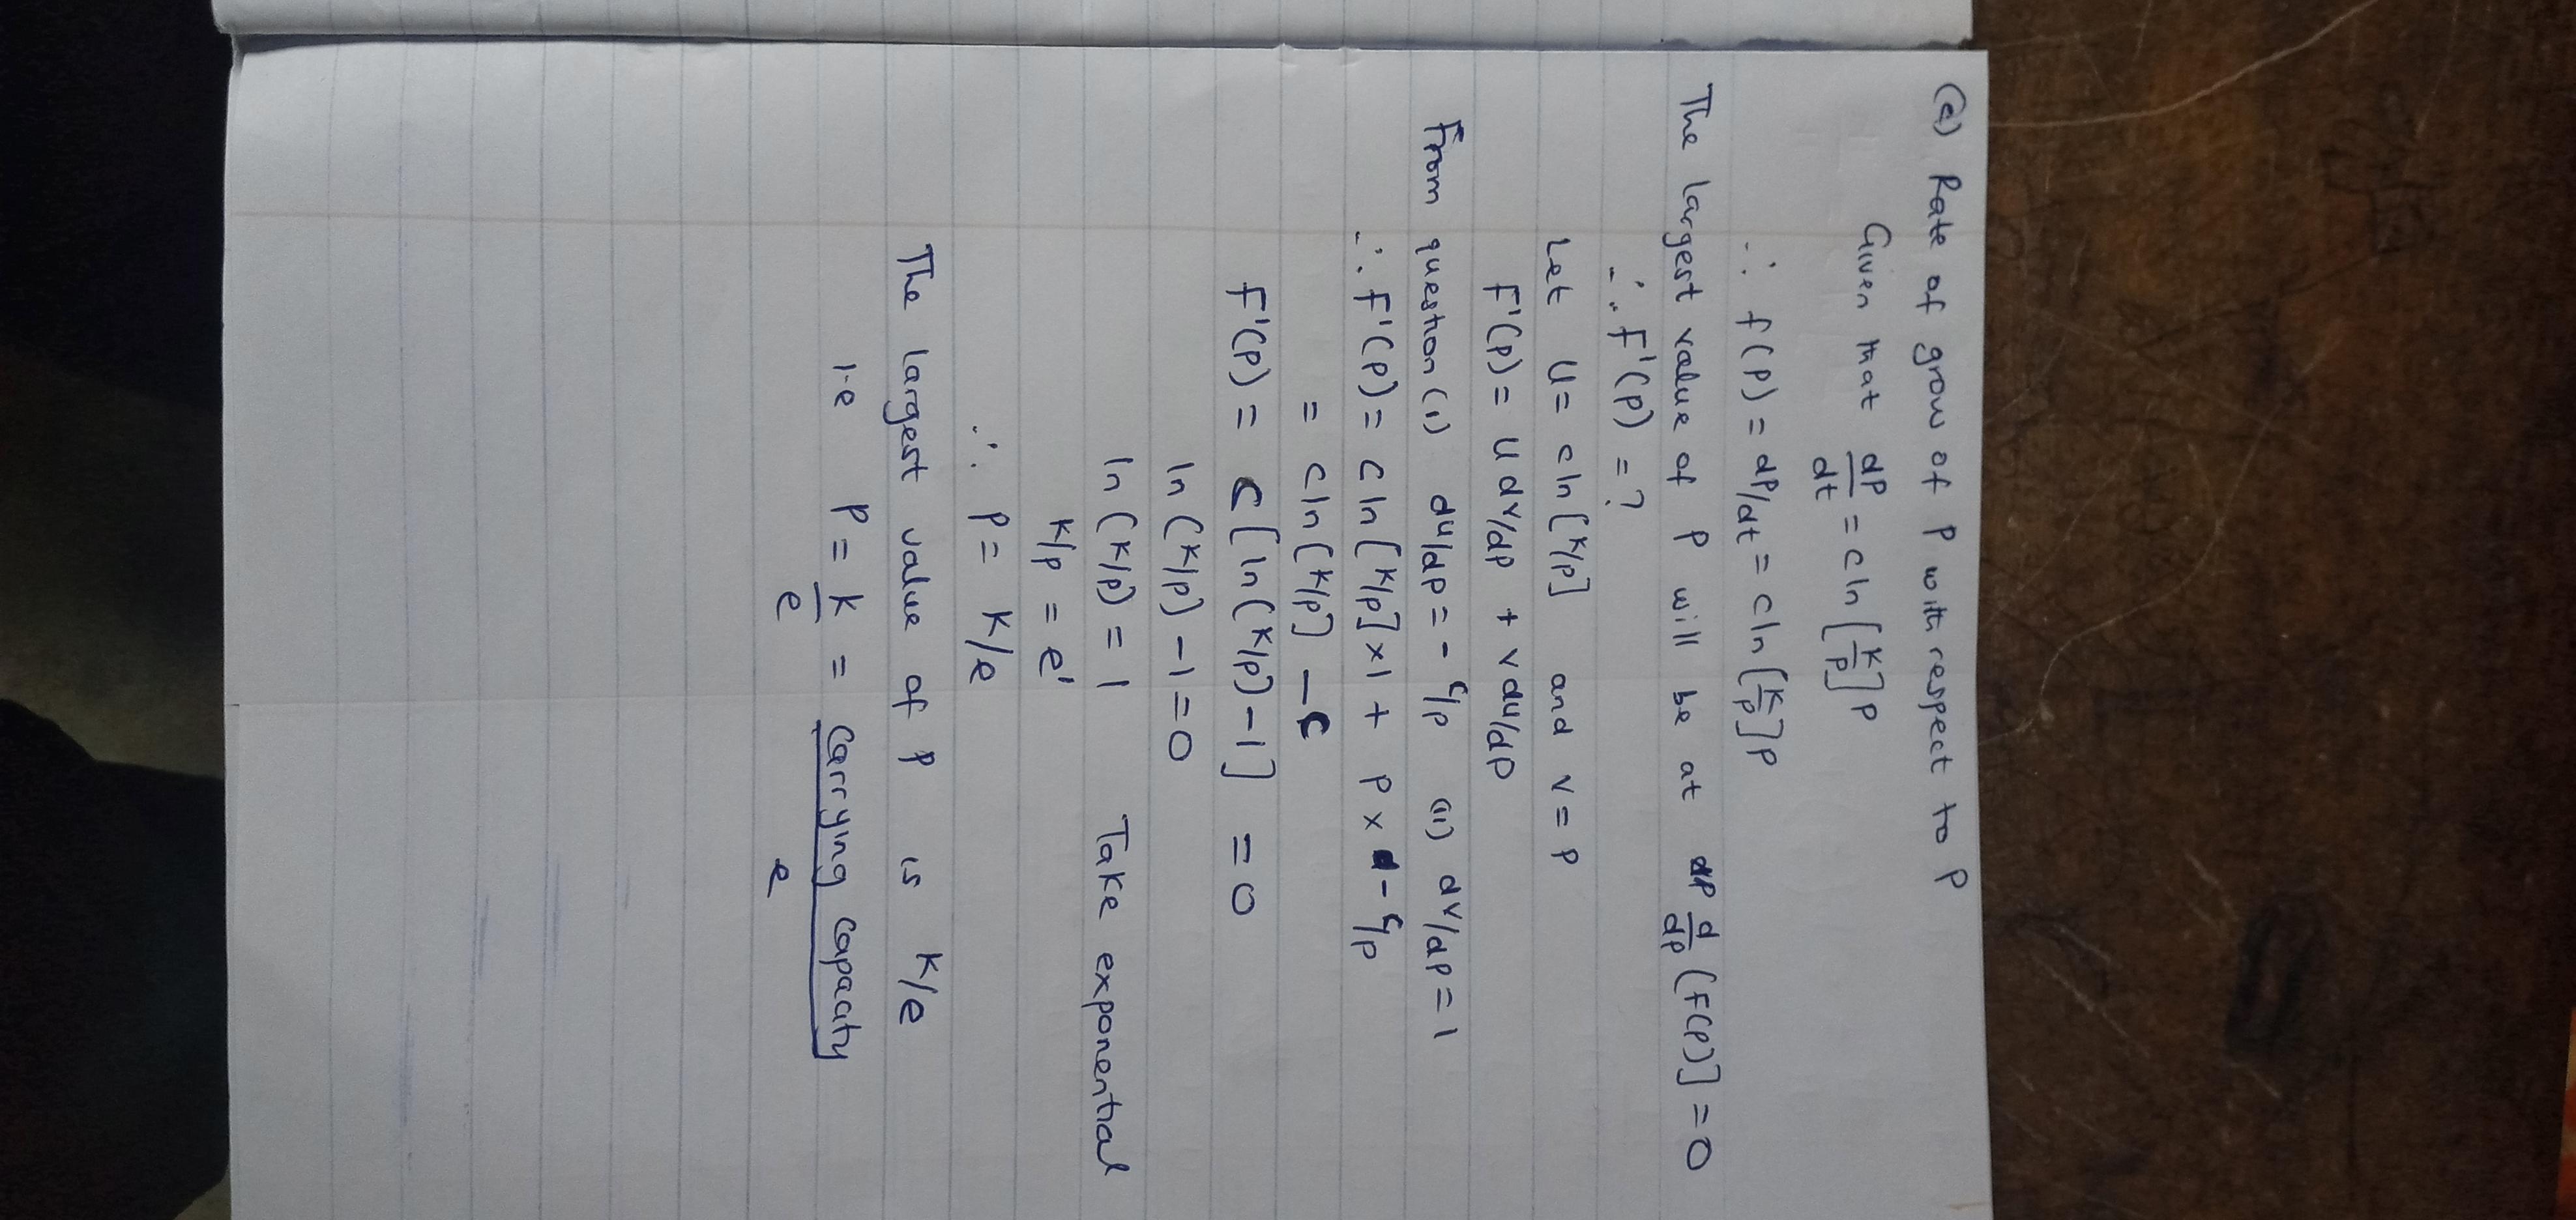 (e) Rate of grow of P with respect to P
Given that dP/dt = c ln [K/P] P
∴ f(P) = dP/dt = c ln [K/P] P
The largest value of P will be at d/dP (F(P)] = 0
∴ F'(P) = ?
Let U = c ln [K/P] and V = P
F'(P) = U dV/dP + V dU/dP
From question (i) dU/dP = - C/P (ii) dV/dP = 1
∴ F'(P) = C ln [K/P] × 1 + P × - C/P
= C ln (K/P] - C
F'(P) = C [ln (K/P) - 1] = 0
ln (K/P) - 1 = 0
ln (K/P) = 1 Take exponential
K/P = e'
∴ P = K/e
The largest value of P is K/e
i.e P = K/e = Carrying capacity/e